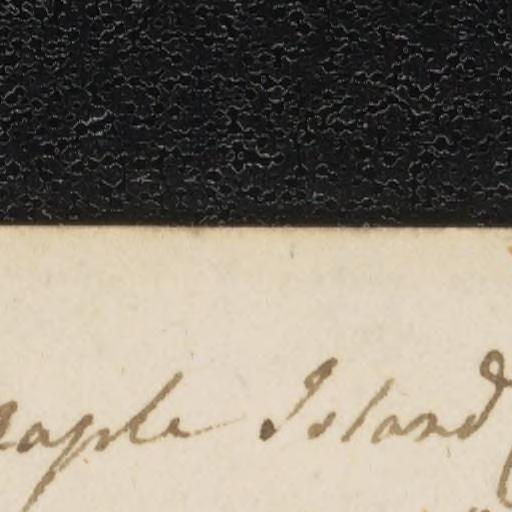 aple Island